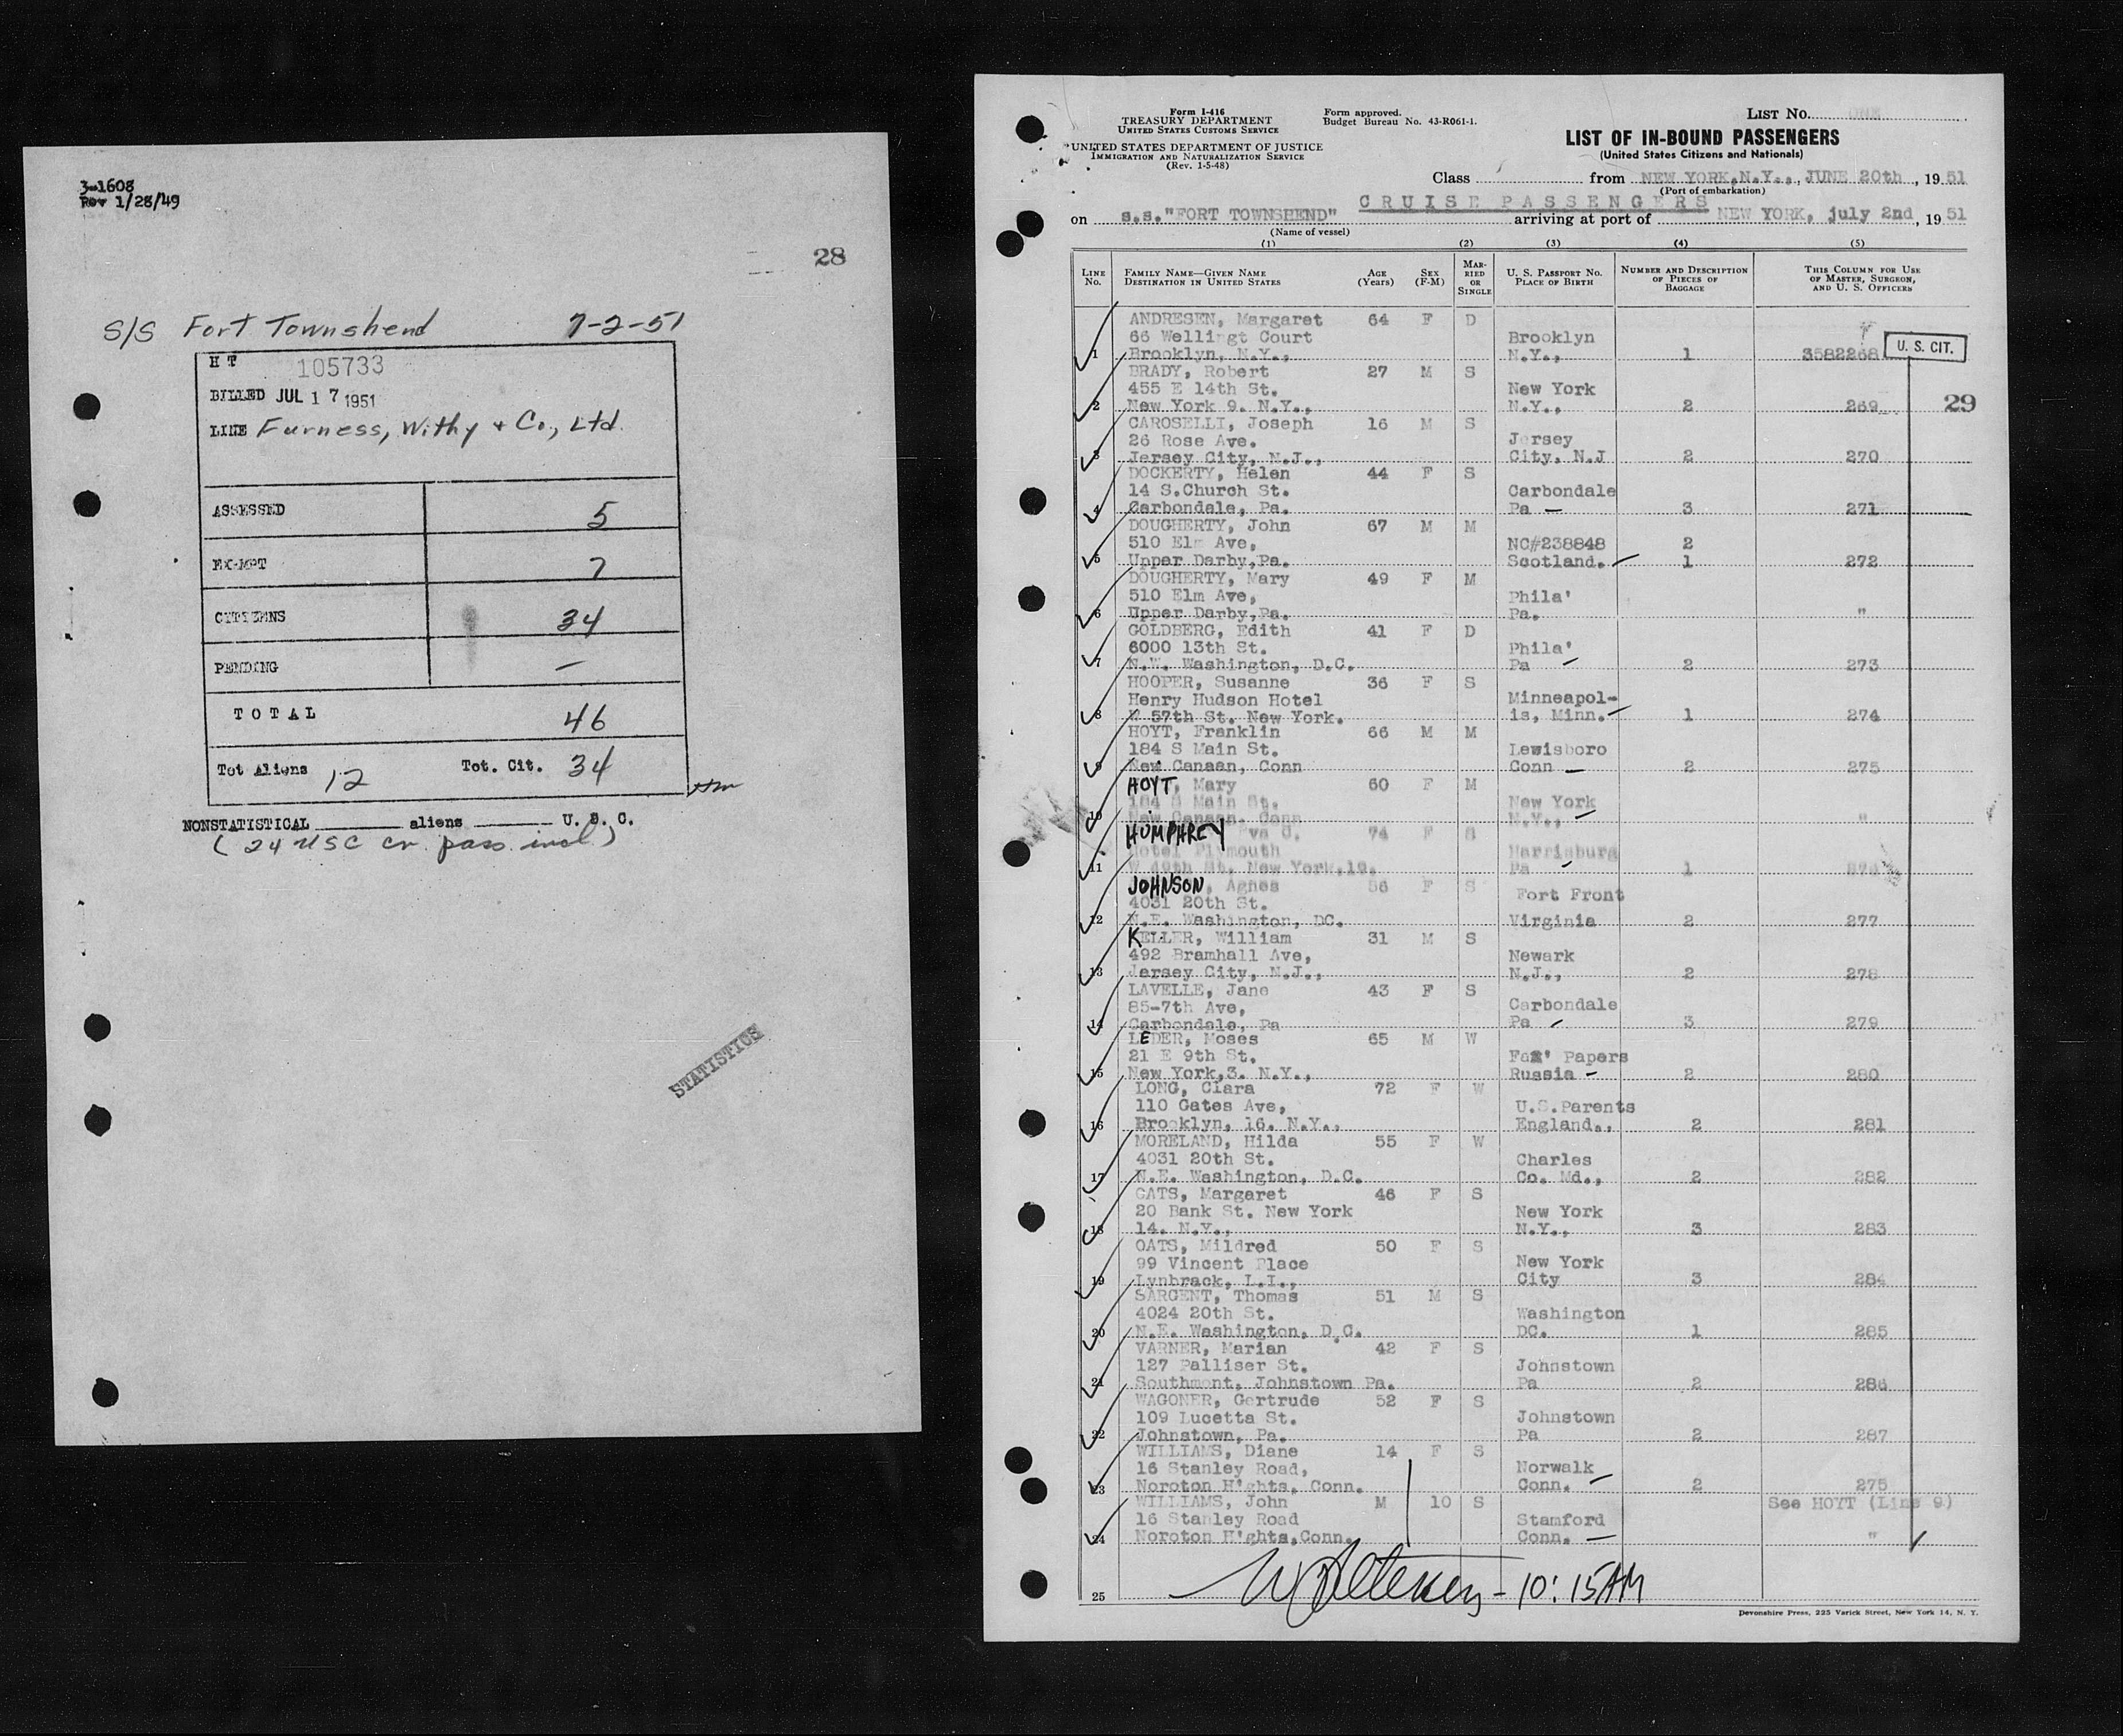 3-1608
Rev 1/28/49
28
S/S Fort Townshend 7-2-51
HT 105733
BILLED JUL 17 1951
LINE Furness, Withy + Co., Ltd.
ASSESSED 5
EXEMPT 7
CITIZENS 34
PENDING —
TOTAL 46
Tot Aliens 12 Tot. Cit. 34
NONSTATISTICAL ______ aliens ______ U. S. C.
(24 USC cr. pass. incl)
STATISTICS
Form I-416
TREASURY DEPARTMENT
UNITED STATES CUSTOMS SERVICE
UNITED STATES DEPARTMENT OF JUSTICE
IMMIGRATION AND NATURALIZATION SERVICE
(Rev. 1-5-48)
Form approved.
Budget Bureau No. 43-R061-1.
LIST NO. ONE
LIST OF IN-BOUND PASSENGERS
(United States Citizens and Nationals)
Class from NEW YORK, N.Y., JUNE 20th, 1951
(Port of embarkation)
CRUISE PASSENGERS
on s.s."FORT TOWNSHEND" arriving at port of NEW YORK, july 2nd, 1951
(Name of vessel)
(1) (2) (3) (4) (5)
LINE NO. FAMILY NAME—GIVEN NAME DESTINATION IN UNITED STATES AGE (Years) SEX (F-M) MARRIED OR SINGLE U. S. PASSPORT NO. PLACE OF BIRTH NUMBER AND DESCRIPTION OF PIECES OF BAGGAGE THIS COLUMN FOR USE OF MASTER, SURGEON, AND U. S. OFFICERS
ANDRESEN, Margaret 64 F D
66 Wellingt Court Brooklyn
1 Brooklyn, N.Y., N.Y., 1 3582268 U. S. CIT.
BRADY, Robert 27 M S
455 E 14th St. New York
2 New York 9. N.Y., N.Y., 2 269 29
CAROSELLI, Joseph 16 M S
26 Rose Ave. Jersey
3 Jersey City, N.J., City, N.J 2 270
DOCKERTY, Helen 44 F S
14 S.Church St. Carbondale
4 Carbondale, Pa. Pa — 3 271
DOUGHERTY, John 67 M M
510 Elm Ave, NC#238848 2
5 Upper Darby,Pa. Scotland. 1 272
DOUGHERTY, Mary 49 F M
510 Elm Ave, Phila'
6 Upper Darby,Pa. Pa. "
GOLDBERG, Edith 41 F D
6000 13th St. Phila'
7 N.W. Washington, D.C. Pa 2 273
HOOPER, Susanne 36 F S
Henry Hudson Hotel Minneapol-
8 W 57th St. New York. is, Minn. 1 274
HOYT, Franklin 66 M M
184 S Main St. Lewisboro
9 New Canaan, Conn Conn — 2 275
HOYT, Mary 60 F M
184 S Main St. New York
10 New Canaan. Conn N.Y., "
HUMPHREY Eva C. 74 F S
Hotel Plymouth Harrisburg
11 W 49th St. New York,19. Pa 1 276
JOHNSON, Agnes 56 F S
4031 20th St. Fort Front
12 N.E. Washington, DC. Virginia 2 277
KELLER, William 31 M S
492 Bramhall Ave, Newark
13 Jersey City, N.J., N.J., 2 278
LAVELLE, Jane 43 F S
85-7th Ave, Carbondale
14 Carbondale, Pa Pa 3 279
LEDER, Moses 65 M W
21 E 9th St. Fa' Papers
15 New York,3. N.Y., Russia — 2 280
LONG, Clara 72 F W
110 Gates Ave, U.S.Parents
16 Brooklyn, 16. N.Y., England., 2 281
MORELAND, Hilda 55 F W
4031 20th St. Charles
17 N.E. Washington, D.C. Co. Md., 2 282
OATS, Margaret 46 F S
20 Bank St. New York New York
18 14. N.Y., N.Y., 3 283
OATS, Mildred 50 F S
99 Vincent Place New York
19 Lynbrack, L.I., City 3 284
SARGENT, Thomas 51 M S
4024 20th St. Washington
20 N.E. Washington, D.C. DC. 1 285
VARNER, Marian 42 F S
127 Palliser St. Johnstown
21 Southmont, Johnstown Pa. Pa 2 286
WAGONER, Gertrude 52 F S
109 Lucetta St. Johnstown
22 Johnstown, Pa. Pa 2 287
WILLIAMS, Diane 14 F S
16 Stanley Road, Norwalk
23 Noroton H'ghts, Conn. Conn. 2 275
WILLIAMS, John M 10 S See HOYT (Line 9)
16 Stanley Road Stamford
24 Noroton H'ghts,Conn. Conn. — "
25 - 10:15AM
Devonshire Press, 225 Varick Street, New York 14, N. Y.